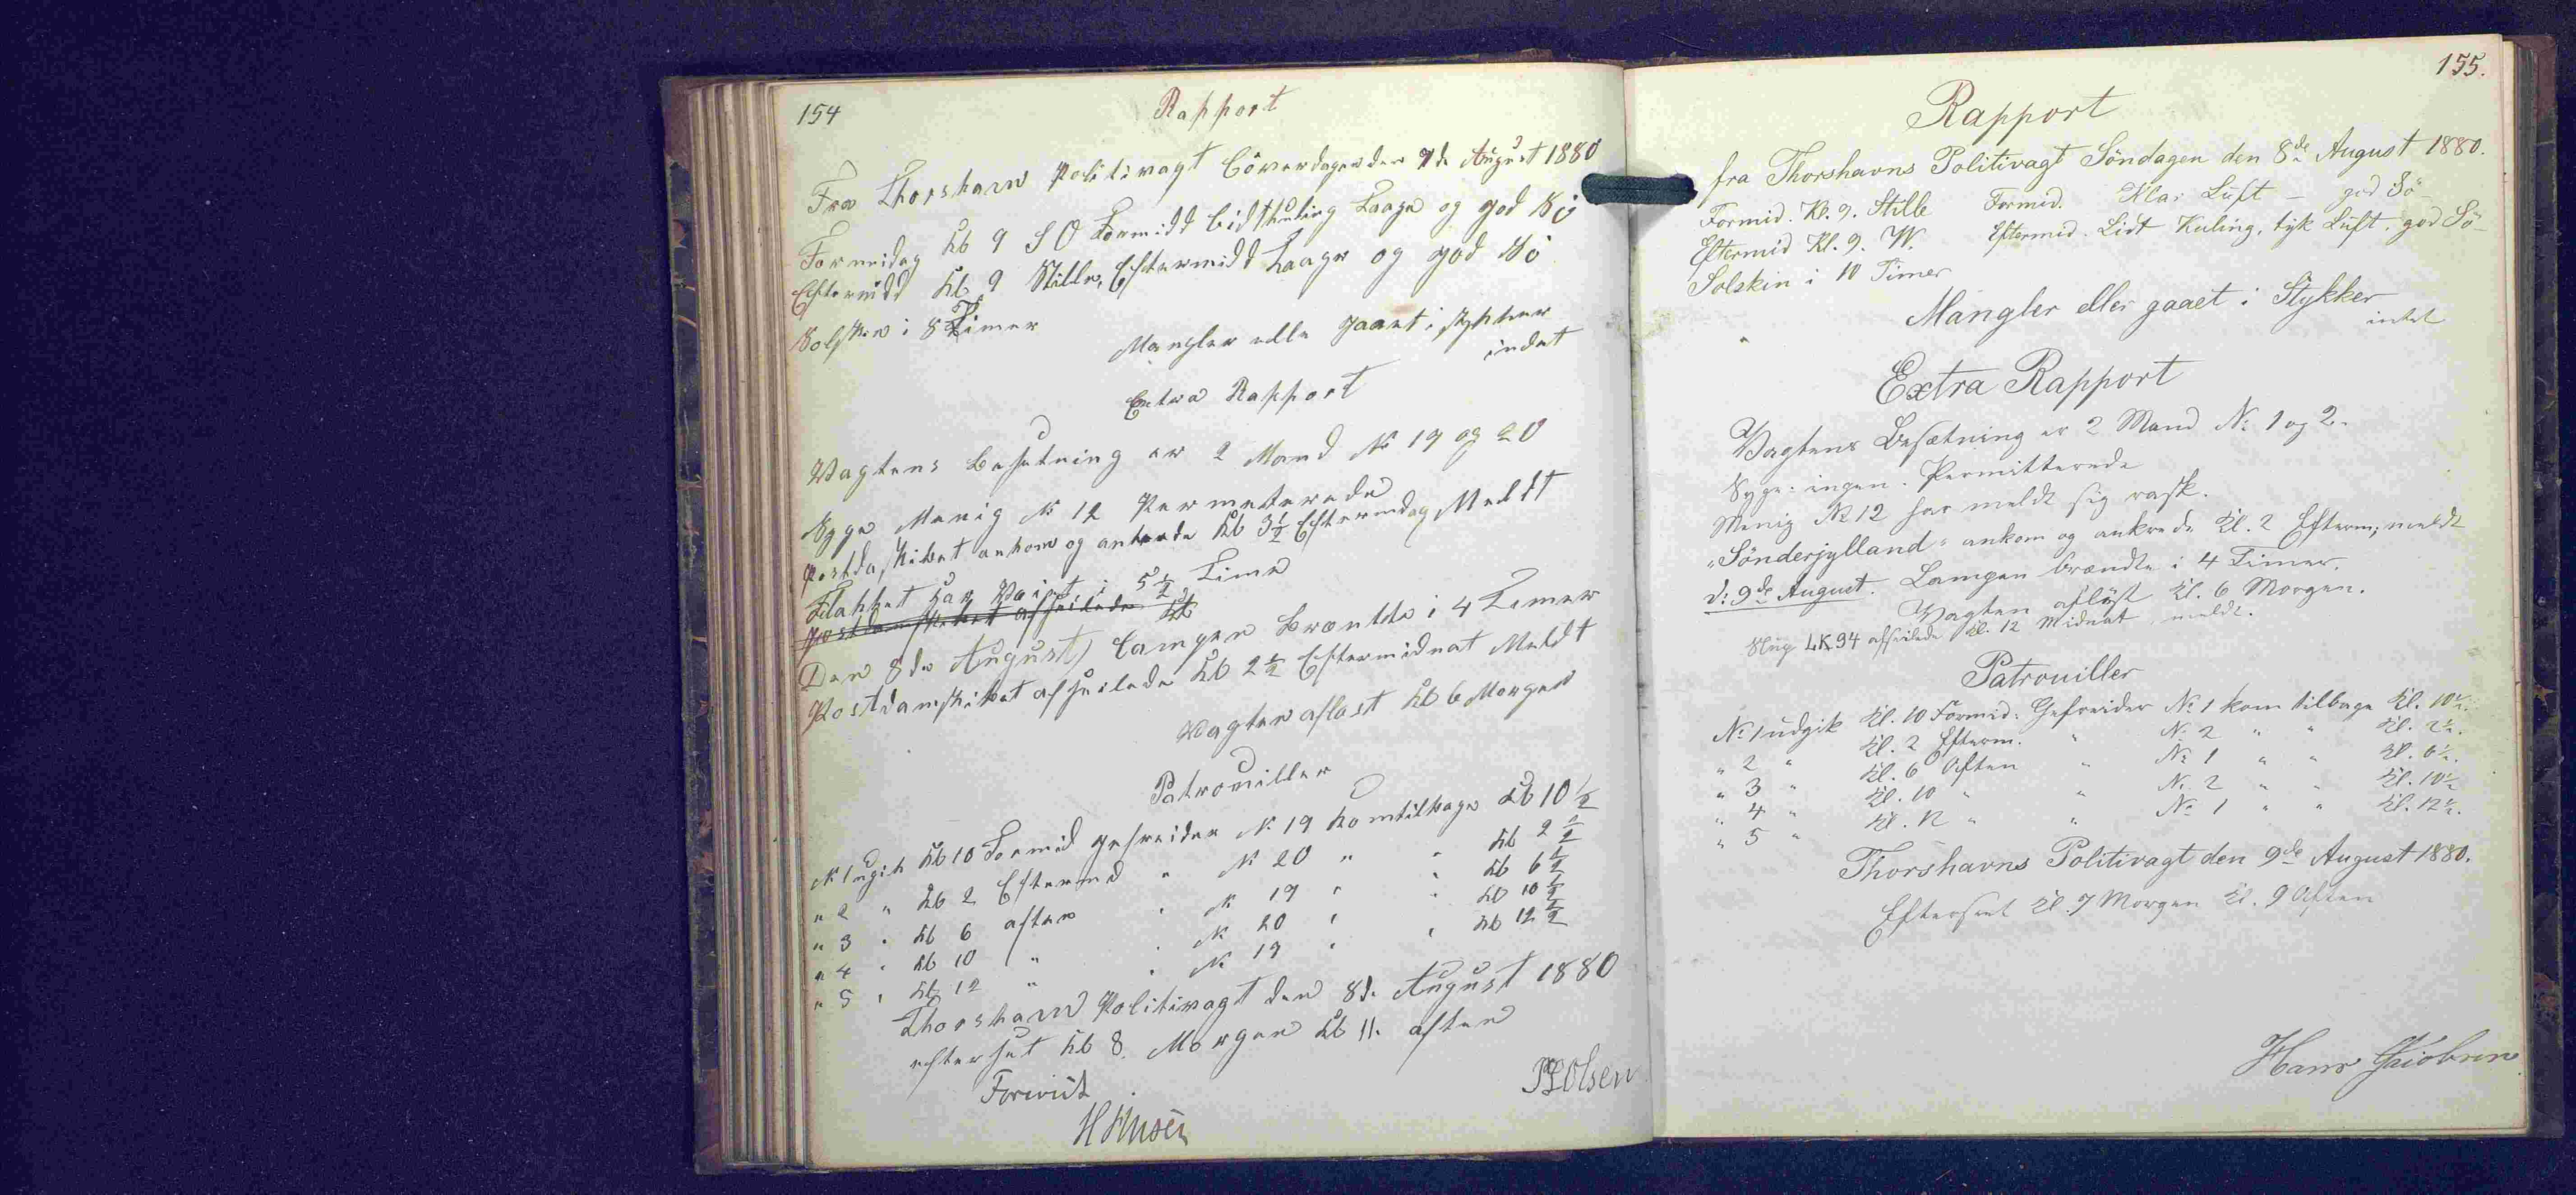 154
Rapport
Fra Thorshavn Politivagt Löverdagen den 7de August 1880
Formidag Kl 9 S O Formidd Lidt Kuling Taage og god Sö
Eftermidd Kl 9 Stille, Eftermidd Taage og god Sö
Solskin i 8 Timer
Mangler elle gaaet i stykker
indet
Extra Rapport
Vagtens Besetning er 2 Mand No 19 og 20
Syge Menig No 12 Permeterede
Postdaskibet ankom og ankrede Kl 3½ Eftermidag Meldt
Flakket har Vaiet i 5½ Time
Postdamskibet afseilede Kl
Den 8de August, Lampen Brændte i 4 Timer
Postdamskibet afseilede Kl 2½ Eftermidnat Meldt
Vagten aflast Kl 6 Morgen
Patrouiller
No 1 ugik Kl 10 Formid gefreider No 19 kom tilbage Kl 10½
" 2 " Kl 2 Eftermd " No 20 " " Kl 2½
" 3 " Kl 6 aften " No 19 " " Kl 6½
" 4 " Kl 10 " " No 20 " " Kl 10½
" 5 " Kl 12 " " No 19 " " Kl 12½
Thorshavn Politivagt den 8de August 1880
efterset Kl 8. Morgen Kl 11. aften
Forevist
Olsen
155.
Rapport
fra Thorshavns Politivagt Söndagen den 8de August 1880.
Formid. Kl. 9. Stille Formid. Klar Luft – god Sö
Eftermid Kl. 9. W. Eftermid. Lidt Kuling, tyk Luft, god Sö
Solskin i 10 Timer
Mangler eller gaaet i Stykker
intet
Extra Rapport
Vagtens Besætning er 2 Mand No 1 og 2.
Syge: ingen. Permitterede
Menig No 12 har meldt sig rask.
"Sönderjylland" ankom og ankrede Kl. 2 Efterm; meldt
d: 9de August. Lampen brændte i 4 Timer.
Vagten aflöst Kl. 6 Morgen.
Slup LK 94 afseilede Kl. 12 Midnat, meldt.
Patrouiller
No 1 udgik Kl. 10 Formid: Gefreider No 1 kom tilbage Kl. 10½.
" 2 " Kl. 2 Efterm. " No 2 " " Kl. 2½.
" 3 " Kl. 6 Aften " No 1 " " Kl. 6½.
" 4 " Kl. 10 " " No 2 " " Kl. 10½
" 5 " Kl. 12 " " No 1 " " Kl. 12½.
Thorshavns Politivagt den 9de August 1880.
Efterset Kl. 7 Morgen Kl. 9 Aften
Hans Jacobsen